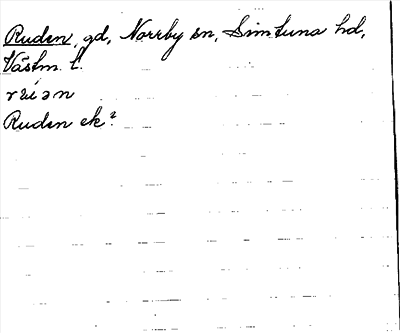 Ruden, gd, Norrby sn, Simtuna hd,
Västm. l.
Ruden ek?